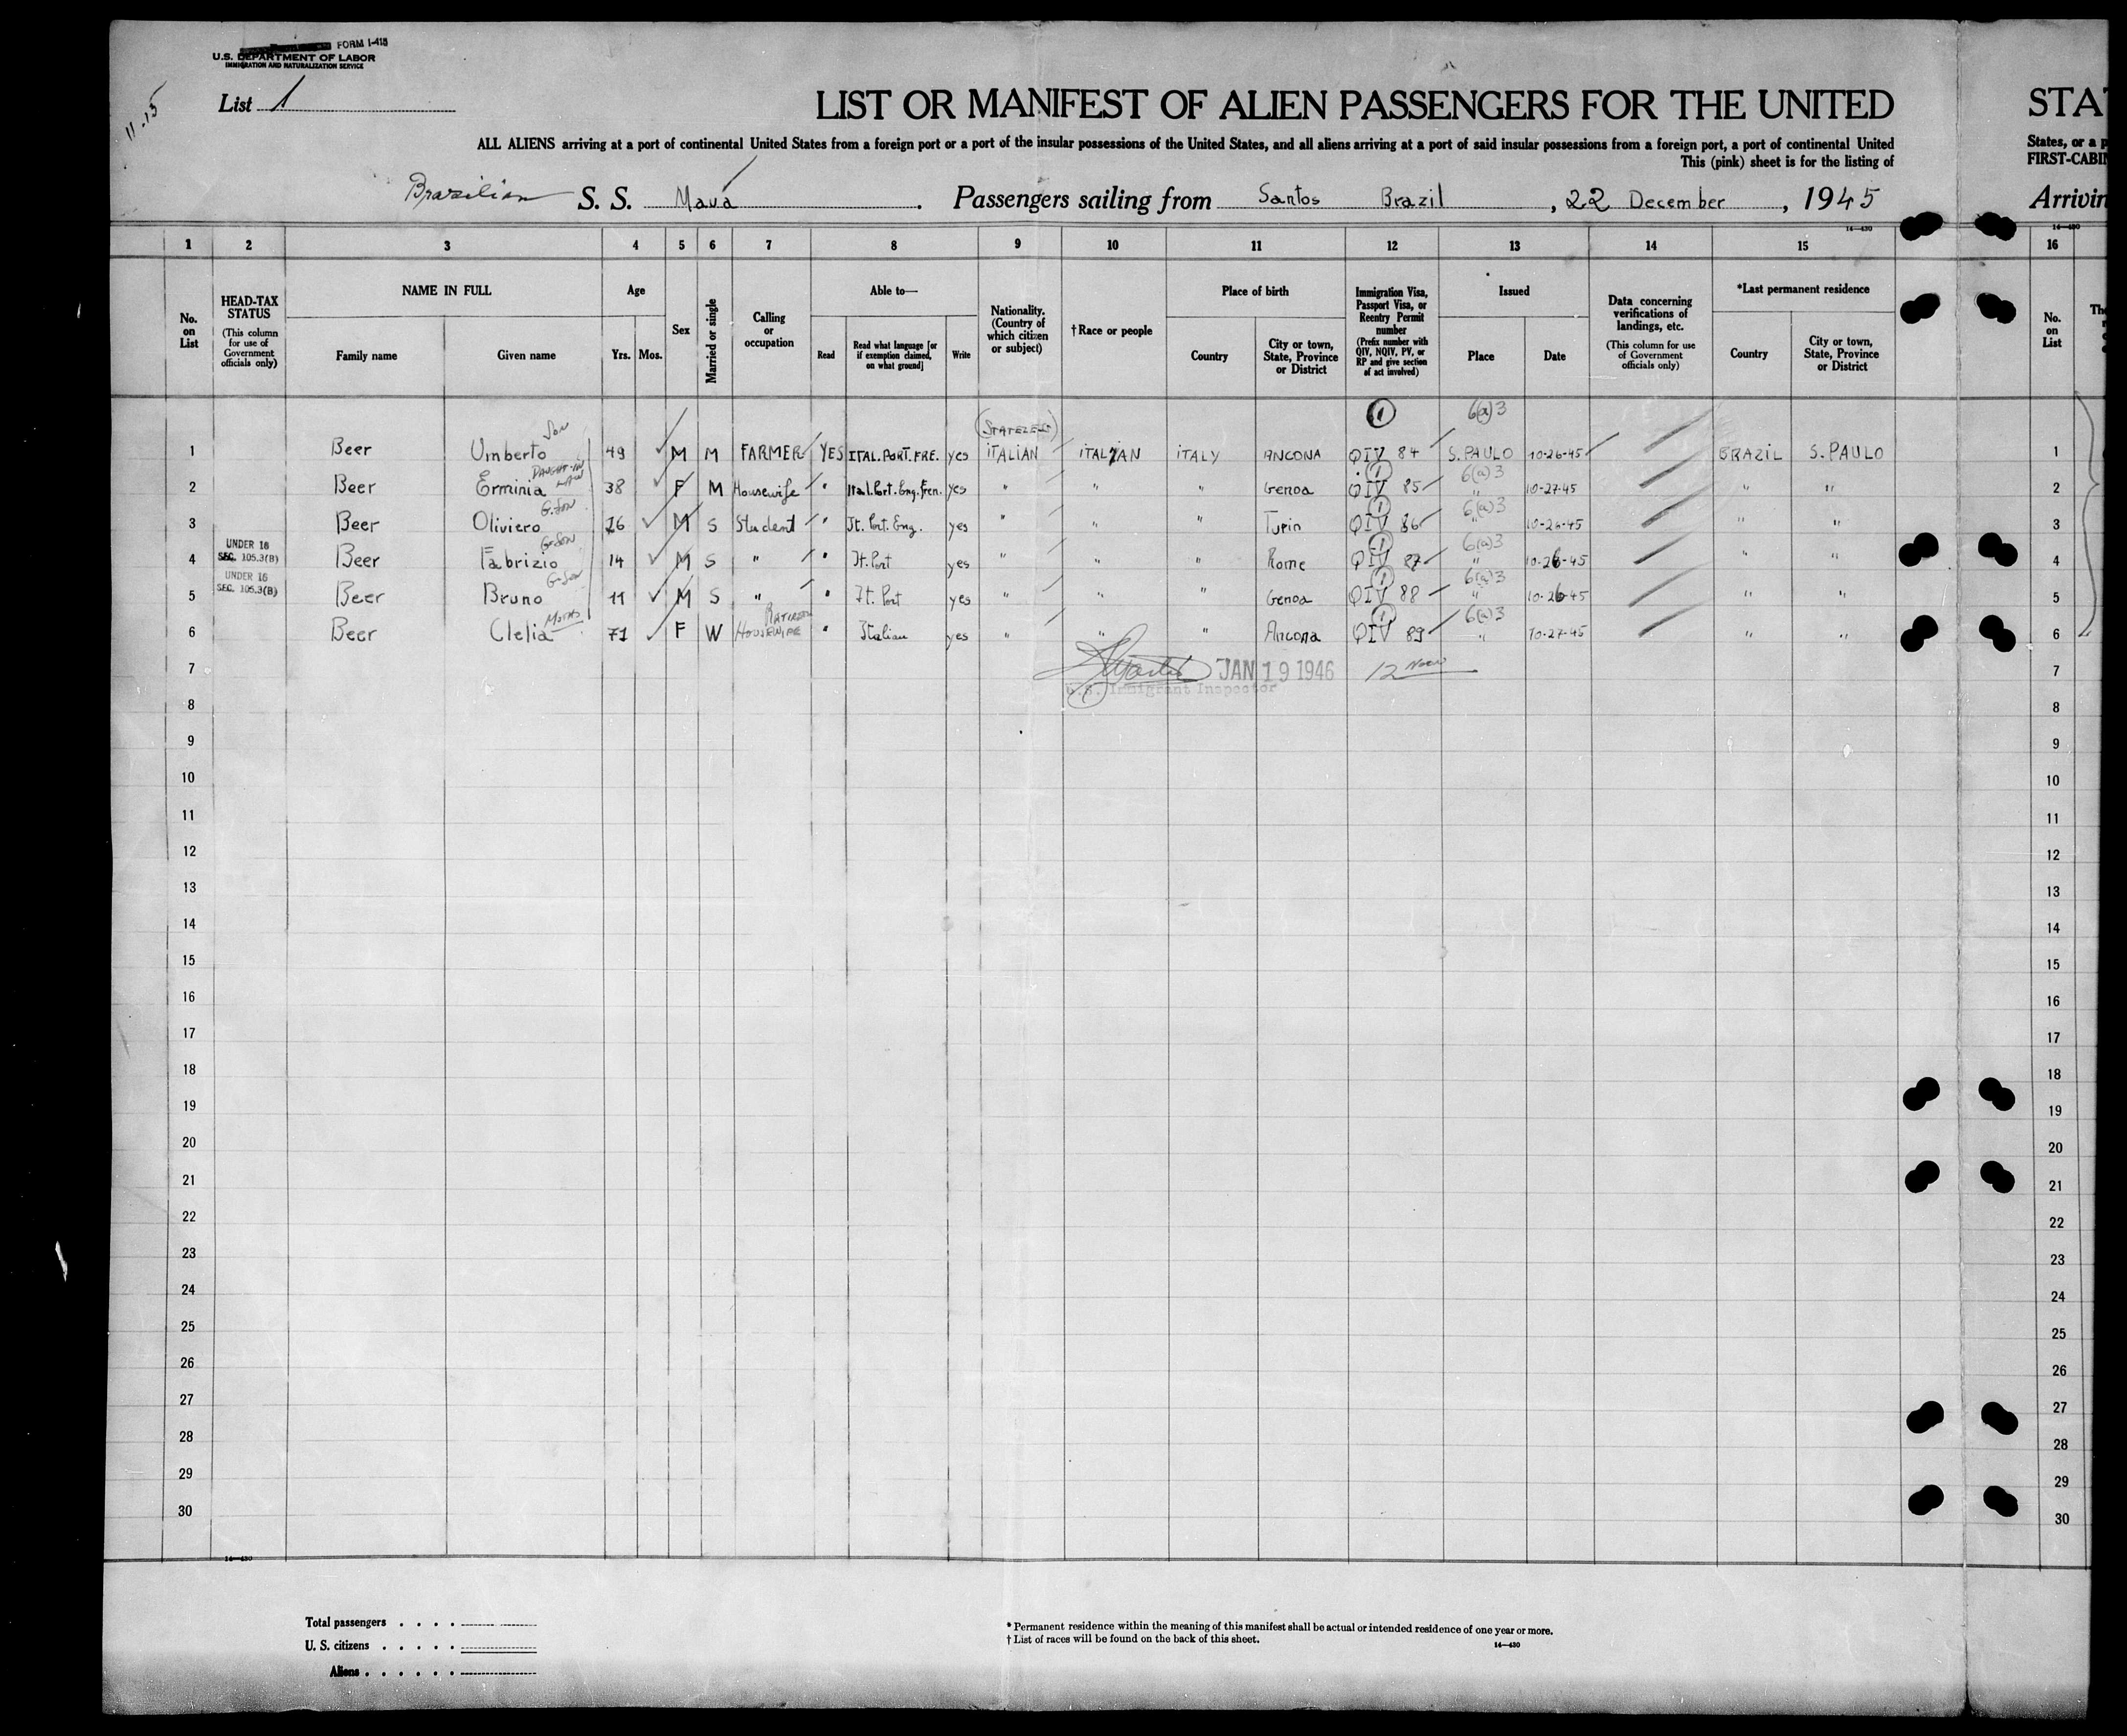 FORM I-415
U.S. DEPARTMENT OF LABOR
IMMIGRATION AND NATURALIZATION SERVICE
11-15
List 1
LIST OR MANIFEST OF ALIEN PASSENGERS FOR THE UNITED
STAT
ALL ALIENS arriving at a port of continental United States from a foreign port or a port of the insular possessions of the United States, and all aliens arriving at a port of said insular possessions from a foreign port, a port of continental United
States, or a p
This (pink) sheet is for the listing of
FIRST-CABI
Brazilian S. S. Mauá . Passengers sailing from Santos Brazil , 22 December , 1945
Arrivin
14—430 14—430
1 2 3 4 5 6 7 8 9 10 11 12 13 14 15 16
No. on List
HEAD-TAX STATUS (This column for use of Government officials only)
NAME IN FULL
Family name Given name
Age
Yrs. Mos.
Sex
Married or single
Calling or occupation
Able to—
Read Read what language [or if exemption claimed, on what ground] Write
Nationality. (Country of which citizen or subject)
†Race or people
Place of birth
Country City or town, State, Province or District
Immigration Visa, Passport Visa, or Reentry Permit number (Prefix number with QIV, NQIV, PV, or RP and give section of act involved)
Issued
Place Date
Data concerning verifications of landings, etc. (This column for use of Government officials only)
*Last permanent residence
Country City or town, State, Province or District
No. on List
Son (STATELESS) 1 6(a)3
1 Beer Umberto 49 M M FARMER YES ITAL. PORT. FRE. yes ITALIAN ITALIAN ITALY ANCONA QIV 84 S. PAULO 10-26-45 BRAZIL S. PAULO 1
DAUGHT-IN LAW 1 6(a)3
2 Beer Erminia 38 F M Housewife " Ital. Port. Eng. Fren. yes " " " Genoa QIV 85 " 10-27-45 " " 2
G. Son 1 6(a)3
3 Beer Oliviero 16 M S Student " It. Port. Eng. yes " " " Turin QIV 86 " 10-26-45 " " 3
UNDER 16 SEC. 105.3(B) G-Son 1 6(a)3
4 Beer Fabrizio 14 M S " " It. Port yes " " " Rome QIV 87 " 10-26-45 " " 4
UNDER 16 SEC. 105.3(B) G-Son 1 6(a)3
5 Beer Bruno 11 M S " " It. Port yes " " " Genoa QIV 88 " 10-26-45 " " 5
RETIRED 1 6(a)3
6 Beer Clelia 71 F W HOUSEWIFE " Italian yes " " " Ancona QIV 89 " 10-27-45 " " 6
7 JAN 19 1946 12 Noon 7
U.S. Immigrant Inspector
(1)
8 8
9 9
10 10
11 11
12 12
13 13
14 14
15 15
16 16
17 17
18 18
19 19
20 20
21 21
22 22
23 23
24 24
25 25
26 26
27 27
28 28
29 29
30 30
14—430
Total passengers . . . .
U. S. citizens . . . . .
Aliens . . . . . .
* Permanent residence within the meaning of this manifest shall be actual or intended residence of one year or more.
† List of races will be found on the back of this sheet.
14—430